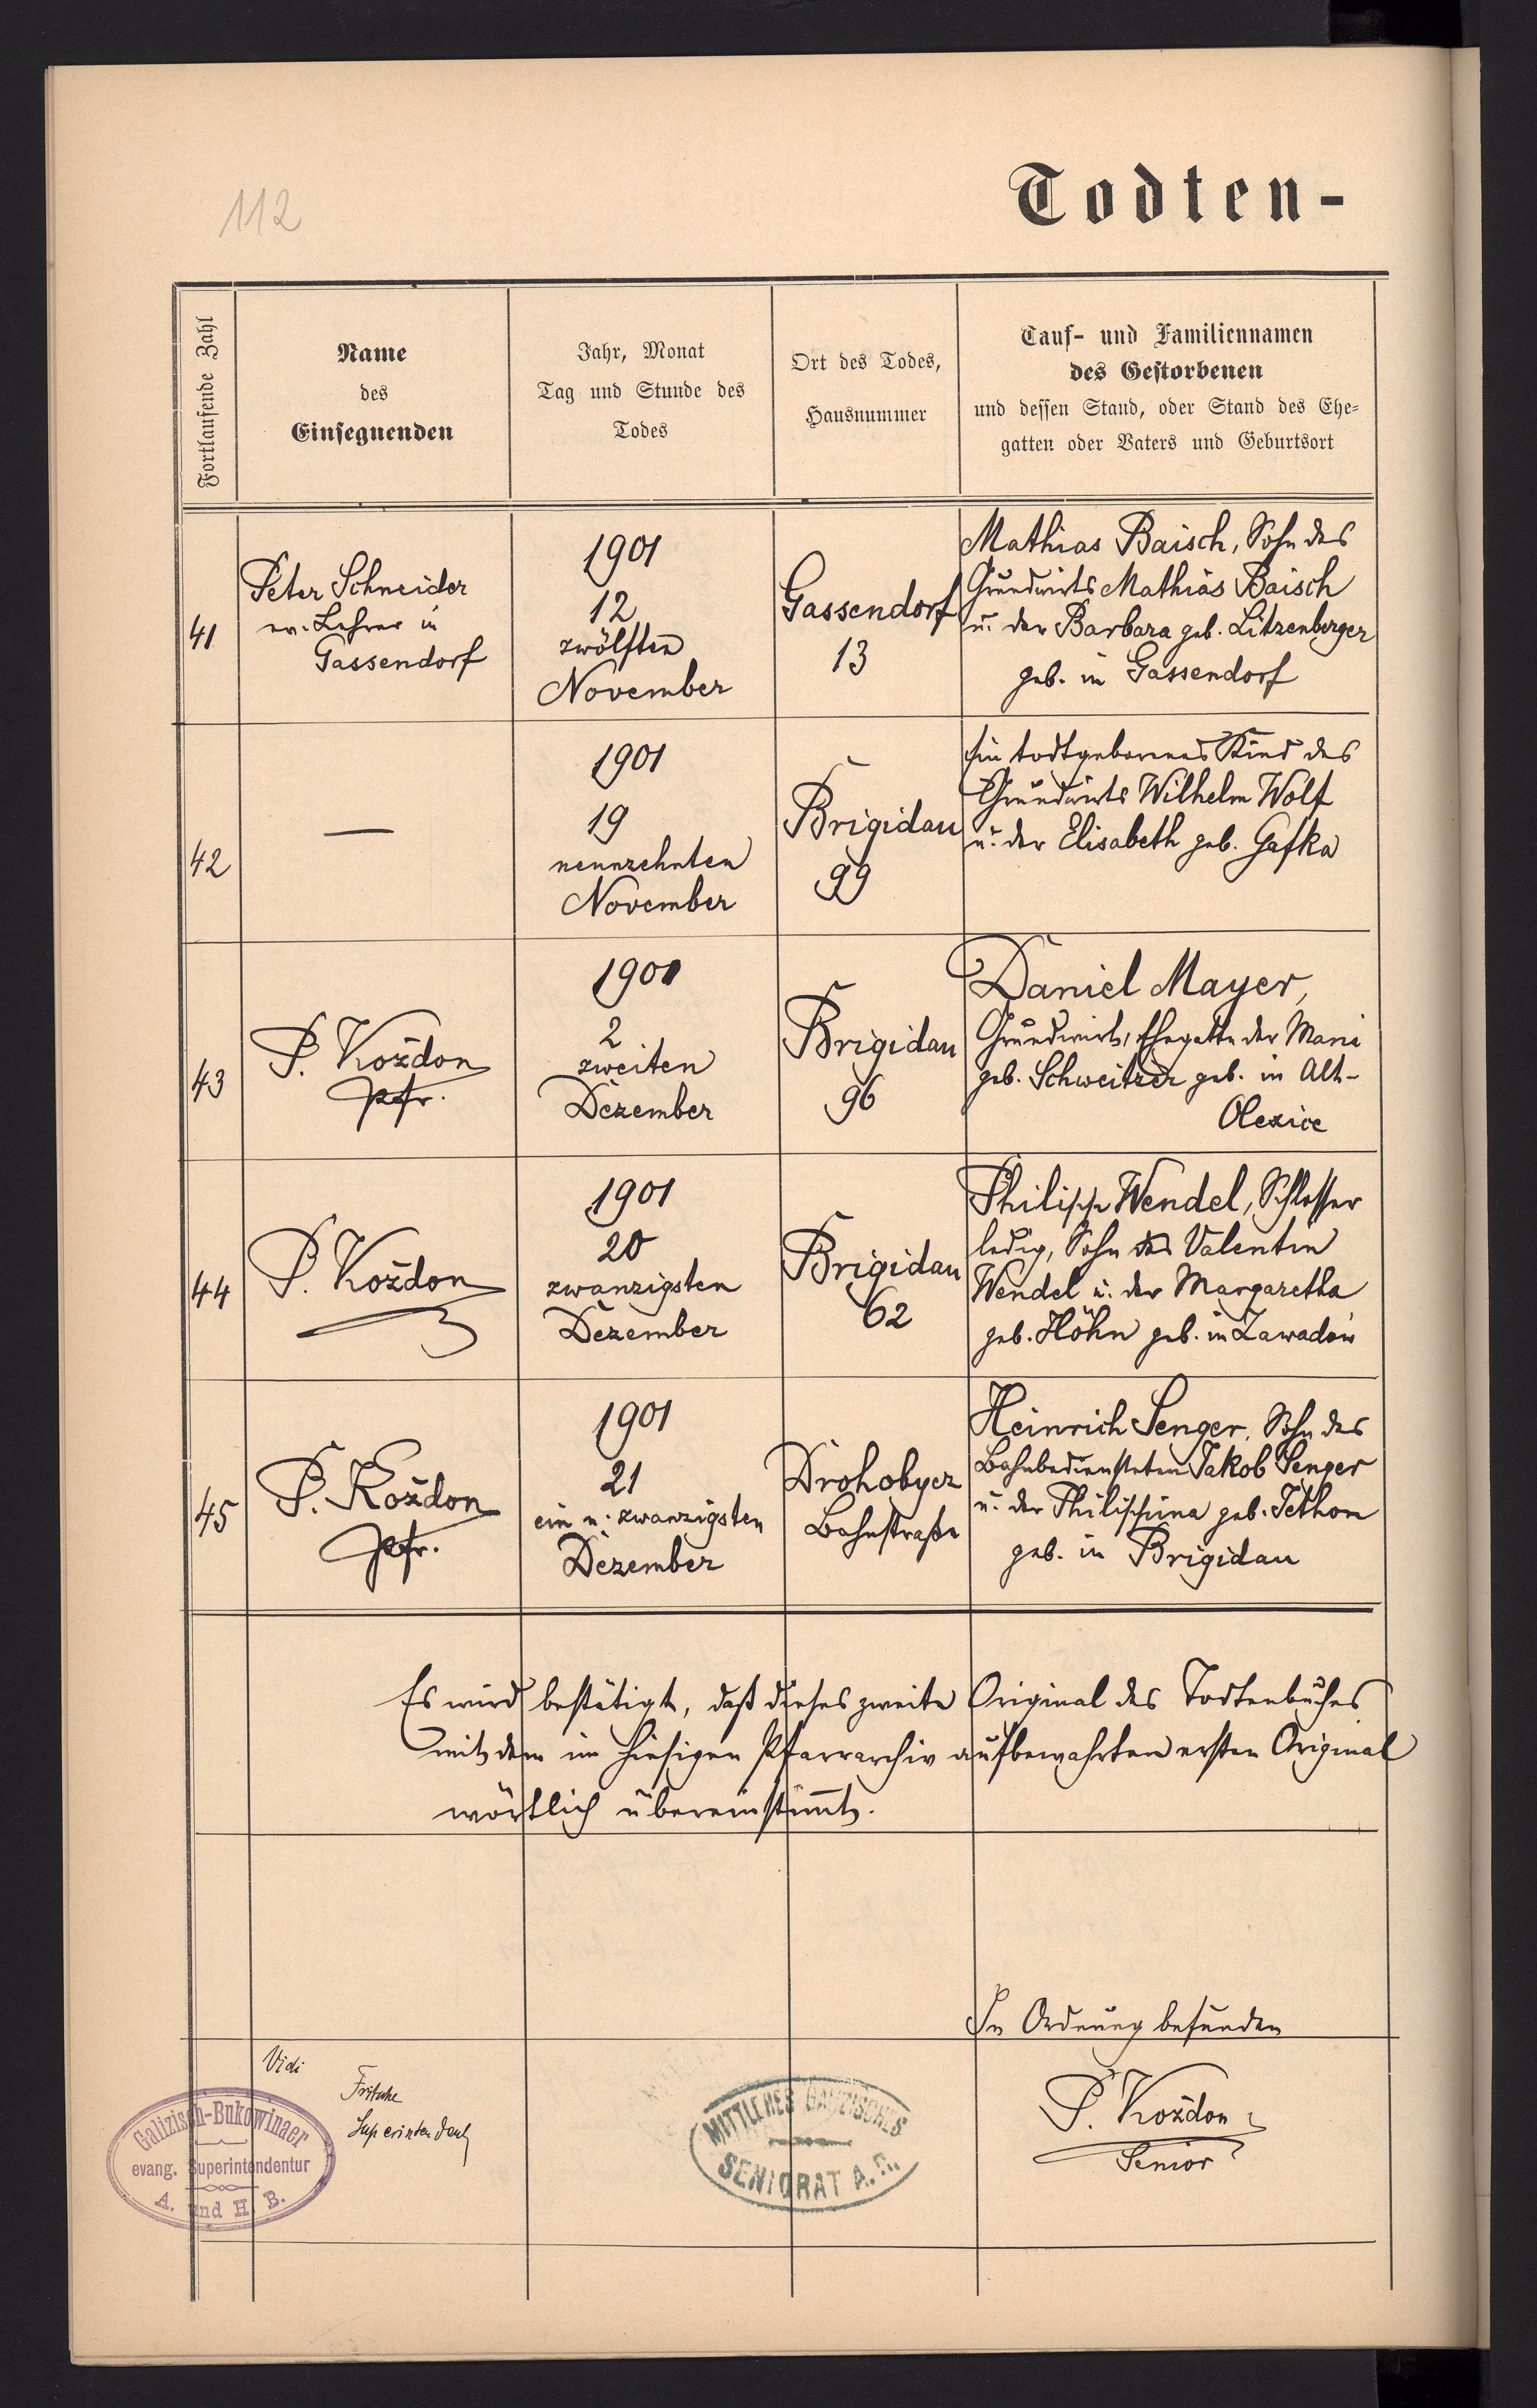 112
Todten-
Fortlaufende Zahl
Name
des
Einsegnenden
Jahr, Monat
Tag und Stunde des
Todes
Ort des Todes,
Hausnummer
Tauf- und Familiennamen
des Gestorbenen
und dessen Stand, oder Stand des Ehe-
gatten oder Vaters und Geburtsort
41
Peter Schneider
ev. Lehrer in
Gassendorf
1901
12
zwölften
November
Gassendorf
13
Mathias Baisch, Sohn des
Grundwirts Mathias Baisch
u. der Barbara geb. Litzenberger
geb. in Gassendorf
42
—
1901
19
neunzehnten
November
Brigidau
99
Ein todtgeborenes Kind des
Grundwirts Wilhelm Wolf
u. der Elisabeth geb. Gafka
43
P. Kożdon
Pfr.
1901
2
zweiten
Dezember
Brigidau
96
Daniel Mayer,
Grundwirt, Ehegatte der Maria
geb. Schweitzer geb. in Alt-
Olexice
44
P. Kożdon
1901
20
zwanzigsten
Dezember
Brigidau
62
Philipp Wendel, Schlosser
ledig, Sohn des Valentin
Wendel u. der Margaretha
geb. Höhn geb. in Zawadów
45
P. Kożdon
Pfr.
1901
21
ein u. zwanzigsten
Dezember
Drohobycz
Bahnstraße
Heinrich Senger, Sohn des
Bahnbediensteten Jakob Senger
u. der Philippina geb. Tethon
geb. in Brigidau
Es wird bestätigt, daß dieses zweite Original des Todtenbuches
mit dem im hiesigen Pfarrarchiv aufbewahrten ersten Original
wörtlich übereinstimmt.
In Ordnung befunden
P. Kożdon
Senior
Vidi
Fritsche
Superintendent
Galizisch-Bukowinaer
evang. Superintendentur
A. und H. B.
MITTLERES GALIZISCHES
SENIORAT A. B.